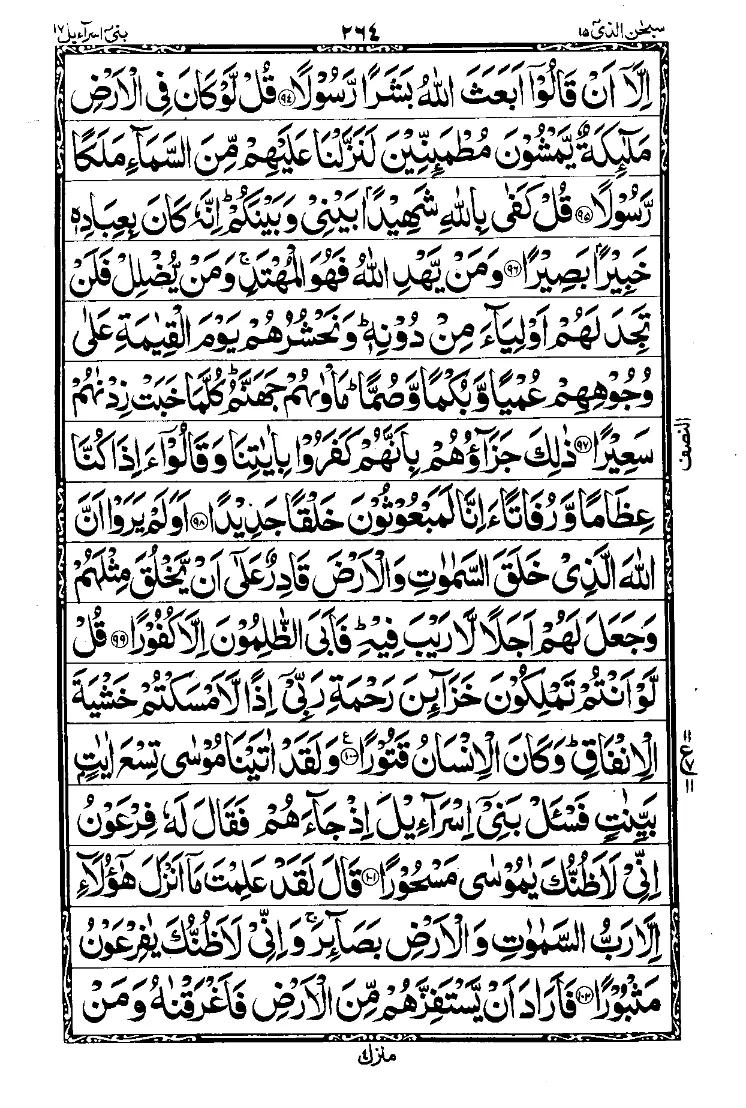 سبحٰن الذیٓ ١٥
٢٦٤
بنیٓ اسرآءیل ١٧
اِلَّاۤ اَنْ قَالُوْۤا اَبَعَثَ اللّٰهُ بَشَرًا رَّسُوْلًا ﴿۹۴﴾ قُلْ لَّوْ كَانَ فِی الْاَرْضِ
مَلٰٓىِٕكَةٌ یَّمْشُوْنَ مُطْمَىِٕنِّیْنَ لَنَزَّلْنَا عَلَیْهِمْ مِّنَ السَّمَآءِ مَلَكًا
رَّسُوْلًا ﴿۹۵﴾ قُلْ كَفٰی بِاللّٰهِ شَهِیْدًۢا بَیْنِیْ وَ بَیْنَكُمْ ؕ اِنَّهٗ كَانَ بِعِبَادِهٖ
خَبِیْرًۢا بَصِیْرًا ﴿۹۶﴾ وَ مَنْ یَّهْدِ اللّٰهُ فَهُوَ الْمُهْتَدِ ۚ وَ مَنْ یُّضْلِلْ فَلَنْ
تَجِدَ لَهُمْ اَوْلِیَآءَ مِنْ دُوْنِهٖ ؕ وَ نَحْشُرُهُمْ یَوْمَ الْقِیٰمَةِ عَلٰی
وُجُوْهِهِمْ عُمْیًا وَّ بُكْمًا وَّ صُمًّا ؕ مَاْوٰىهُمْ جَهَنَّمُ ؕ كُلَّمَا خَبَتْ زِدْنٰهُمْ
سَعِیْرًا ﴿۹۷﴾ ذٰلِكَ جَزَآؤُهُمْ بِاَنَّهُمْ كَفَرُوْا بِاٰیٰتِنَا وَ قَالُوْۤا ءَاِذَا كُنَّا
النصف
عِظَامًا وَّ رُفَاتًا ءَاِنَّا لَمَبْعُوْثُوْنَ خَلْقًا جَدِیْدًا ﴿۹۸﴾ اَوَ لَمْ یَرَوْا اَنَّ
اللّٰهَ الَّذِیْ خَلَقَ السَّمٰوٰتِ وَ الْاَرْضَ قَادِرٌ عَلٰۤی اَنْ یَّخْلُقَ مِثْلَهُمْ
وَ جَعَلَ لَهُمْ اَجَلًا لَّا رَیْبَ فِیْهِ ؕ فَاَبَی الظّٰلِمُوْنَ اِلَّا كُفُوْرًا ﴿۹۹﴾ قُلْ
لَّوْ اَنْتُمْ تَمْلِكُوْنَ خَزَآىِٕنَ رَحْمَةِ رَبِّیْۤ اِذًا لَّاَمْسَكْتُمْ خَشْیَةَ
الْاِنْفَاقِ ؕ وَ كَانَ الْاِنْسَانُ قَتُوْرًا ﴿۱۰۰﴾ وَ لَقَدْ اٰتَیْنَا مُوْسٰی تِسْعَ اٰیٰتٍۭ
بَیِّنٰتٍ فَسْـَٔلْ بَنِیْۤ اِسْرَآءِیْلَ اِذْ جَآءَهُمْ فَقَالَ لَهٗ فِرْعَوْنُ
اِنِّیْ لَاَظُنُّكَ یٰمُوْسٰی مَسْحُوْرًا ﴿۱۰۱﴾ قَالَ لَقَدْ عَلِمْتَ مَاۤ اَنْزَلَ هٰۤؤُلَآءِ
اِلَّا رَبُّ السَّمٰوٰتِ وَ الْاَرْضِ بَصَآىِٕرَ ۚ وَ اِنِّیْ لَاَظُنُّكَ یٰفِرْعَوْنُ
مَثْبُوْرًا ﴿۱۰۲﴾ فَاَرَادَ اَنْ یَّسْتَفِزَّهُمْ مِّنَ الْاَرْضِ فَاَغْرَقْنٰهُ وَ مَنْ
منزل ٤